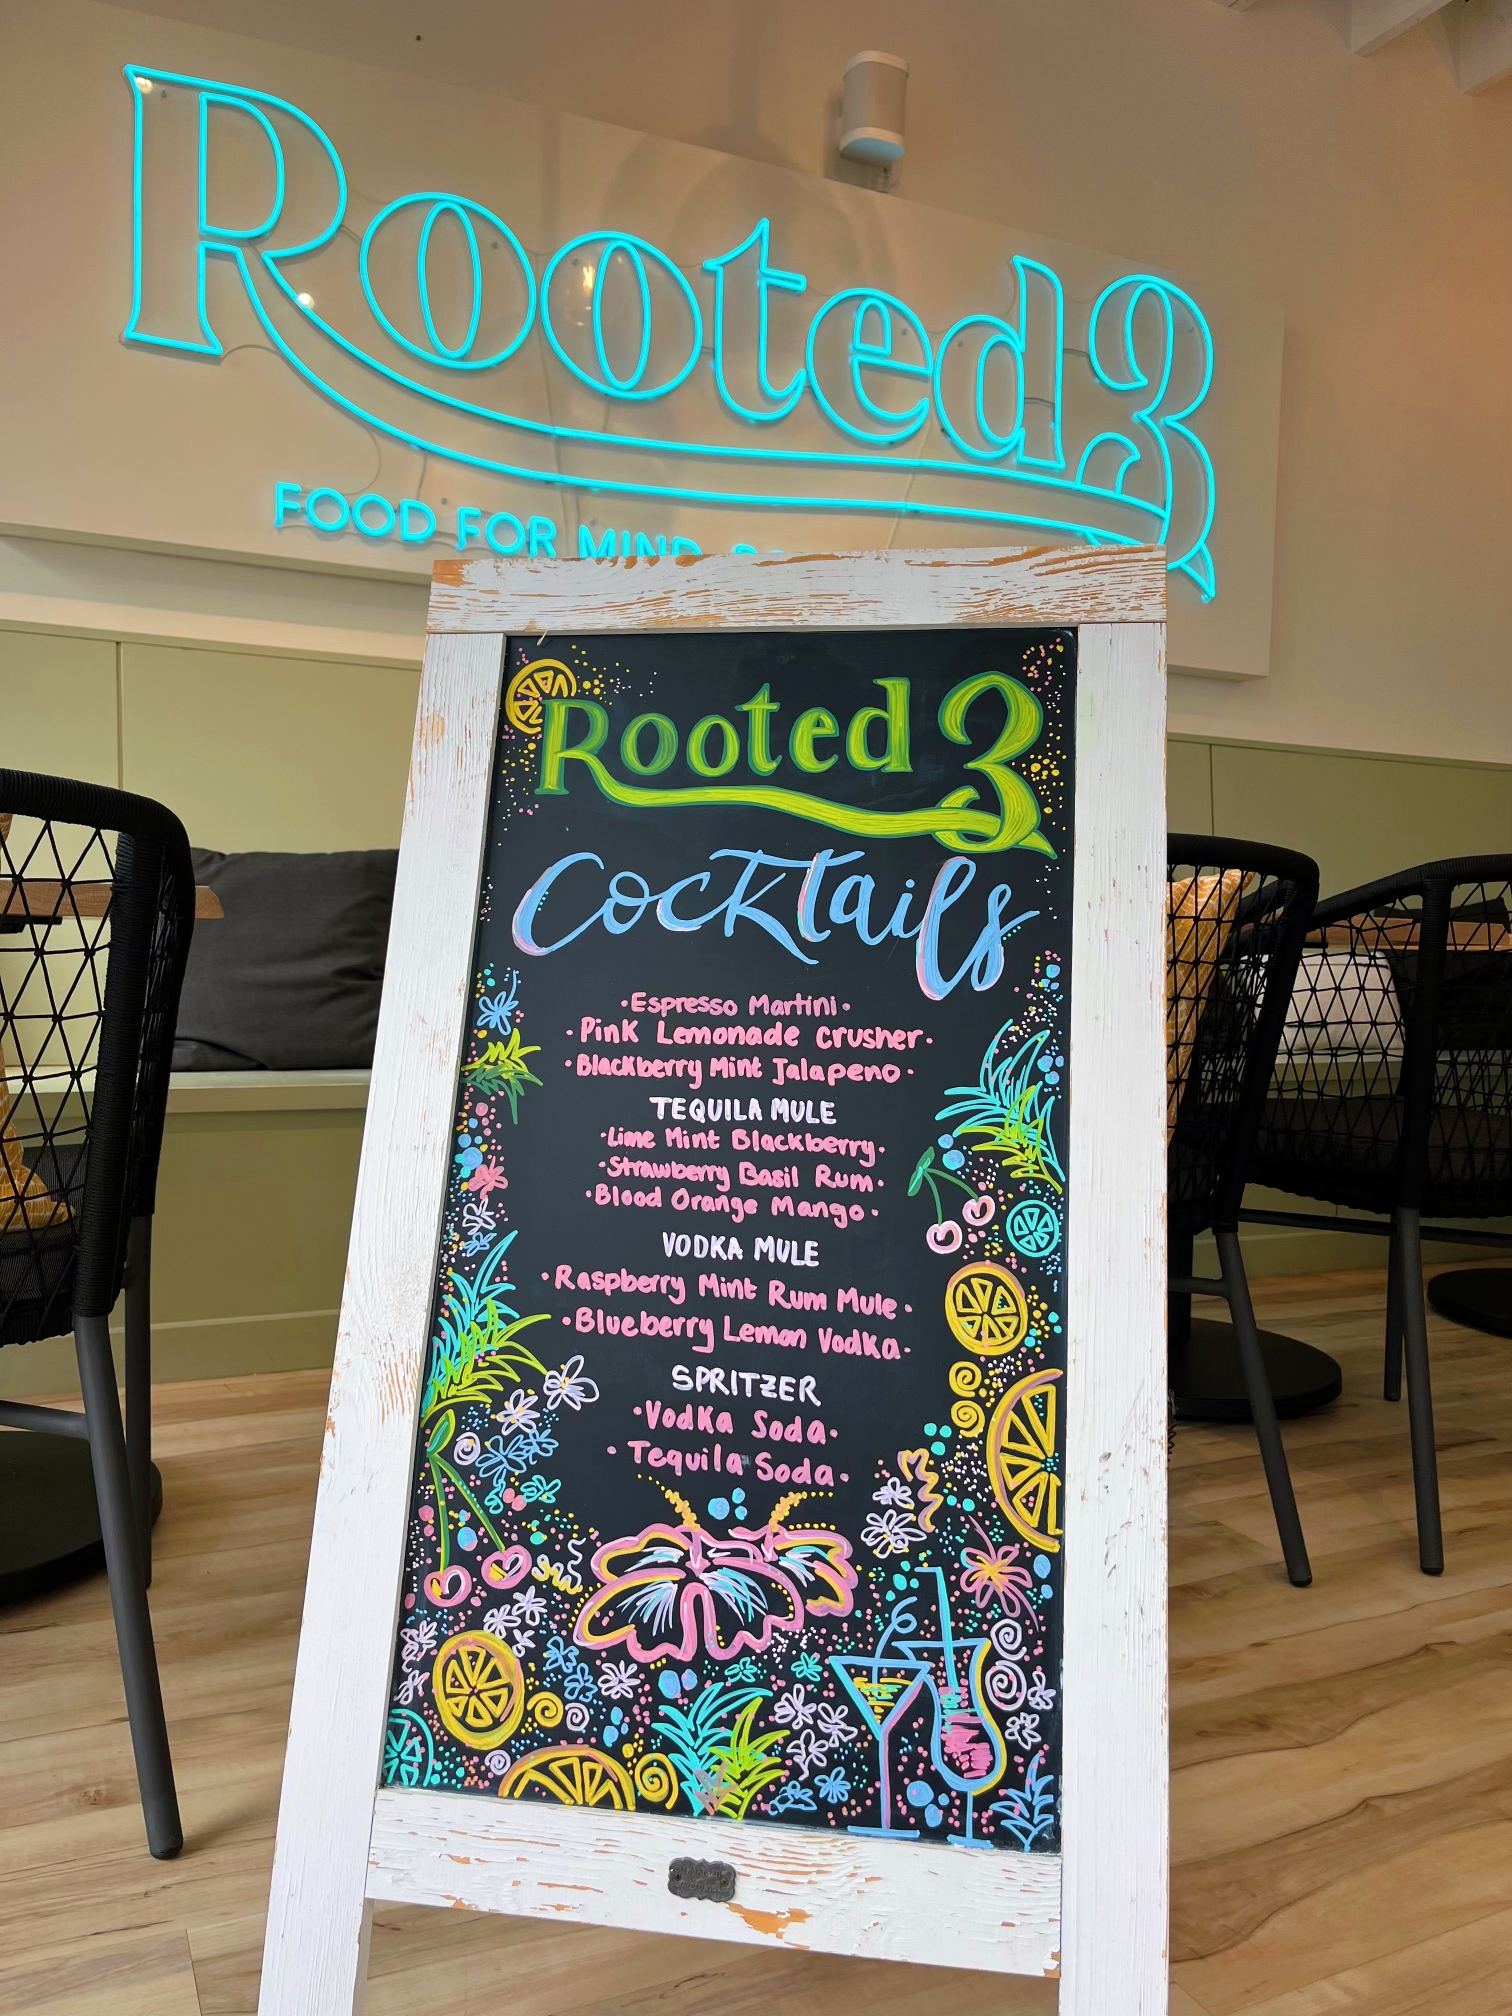 Rooted3
FOOD FOR MIND
Rooted 3
Cocktails
·Espresso Martini·
·Pink Lemonade Crusher·
·Blackberry Mint Jalapeno·
TEQUILA MULE
·Lime Mint Blackberry·
·Strawberry Basil Rum·
·Blood Orange Mango·
VODKA MULE
·Raspberry Mint Rum Mule·
·Blueberry Lemon Vodka·
SPRITZER
·Vodka Soda·
·Tequila Soda·